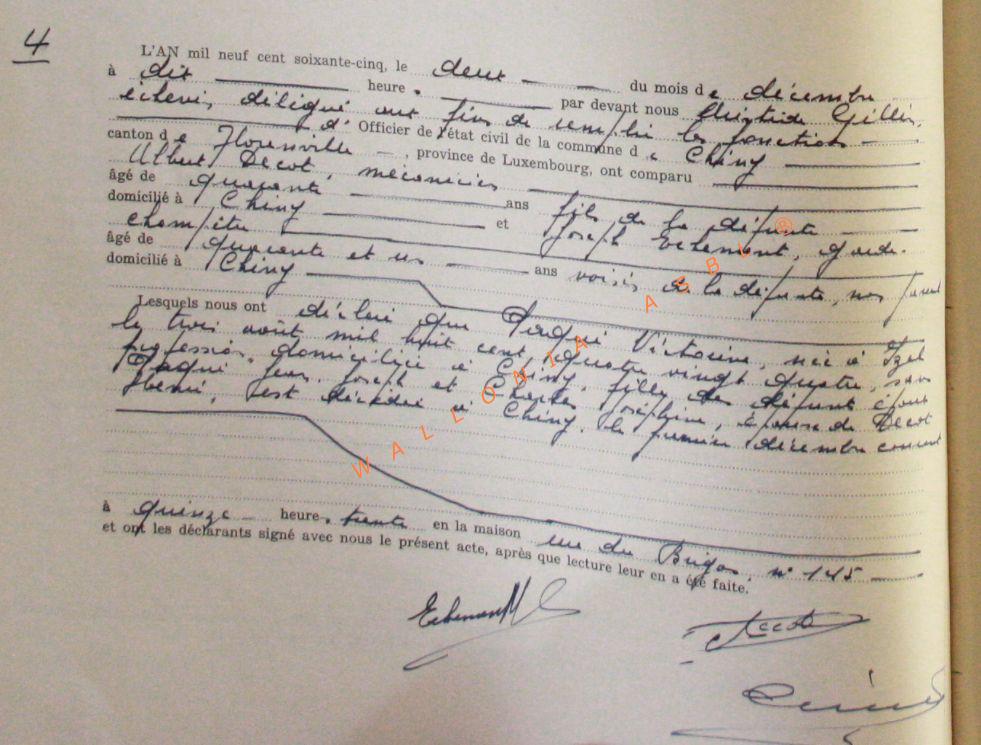 4
L'AN mil neuf cent soixante-cinq, le deux du mois de décembre
à dix heures par devant nous Gillis,
échevin, délégué aux fins de remplir les fonctions
d' Officier de l'état civil de la commune de Chiny
canton de Florenville, province de Luxembourg, ont comparu
Albert Decot, mécanicien
âgé de quarante ans fils de la défunte
domicilié à Chiny et Joseph garde-
champêtre
âgé de quarante et un ans voisin de la défunte, non parent
domicilié à Chiny
Lesquels nous ont déclaré que Victorine, née à Izel
le trois août mil huit cent quatre vingt quatre, sans
profession, domiciliée à Chiny, fille des défunts époux
Jean Joseph et Joséphine, épouse de Decot
est décédée à Chiny, le premier décembre courant
à quinze heures trente en la maison rue du n° 145
et ont les déclarants signé avec nous le présent acte, après que lecture leur en a été faite.
Decot
WALLONIA ASBL ®